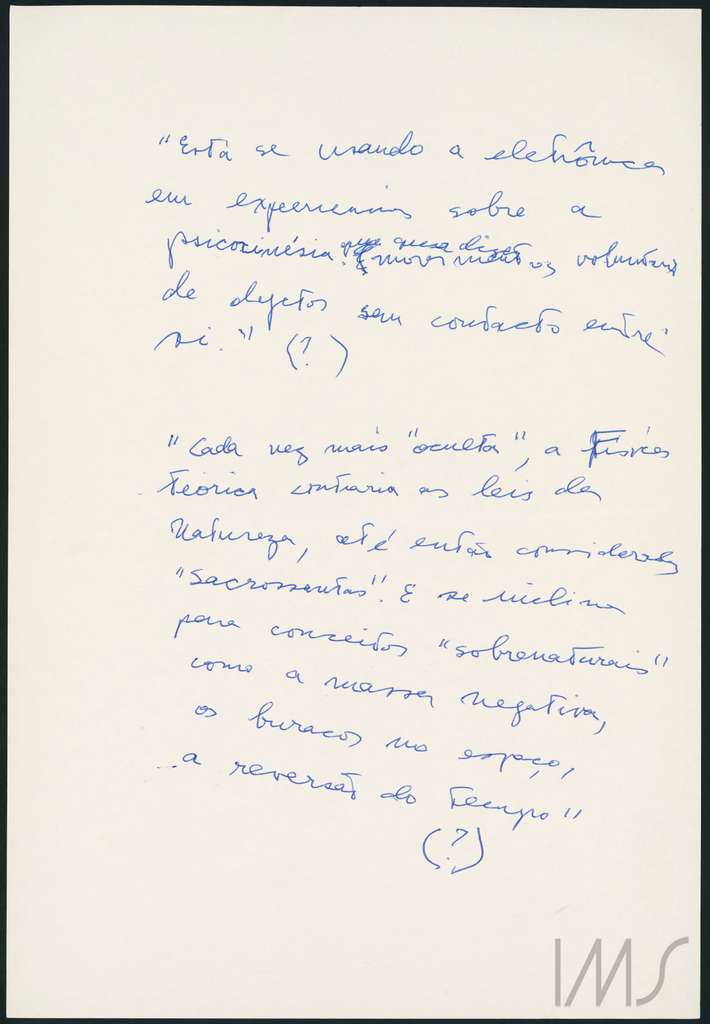 "Está se usando a eletrônica
em experiencias sobre a
psicocinésia. que quer dizer movimentos voluntários
de objetos sem contacto entre
si." (?)
"Cada vez mais "oculta", a Física
Teórica contraria as leis da
Natureza, até então consideradas
"sacrossantas". E se inclina
para conceitos "sobrenaturais"
como a massa negativa,
os buracos no espaço,
a reversão do tempo"
(?)
IMS